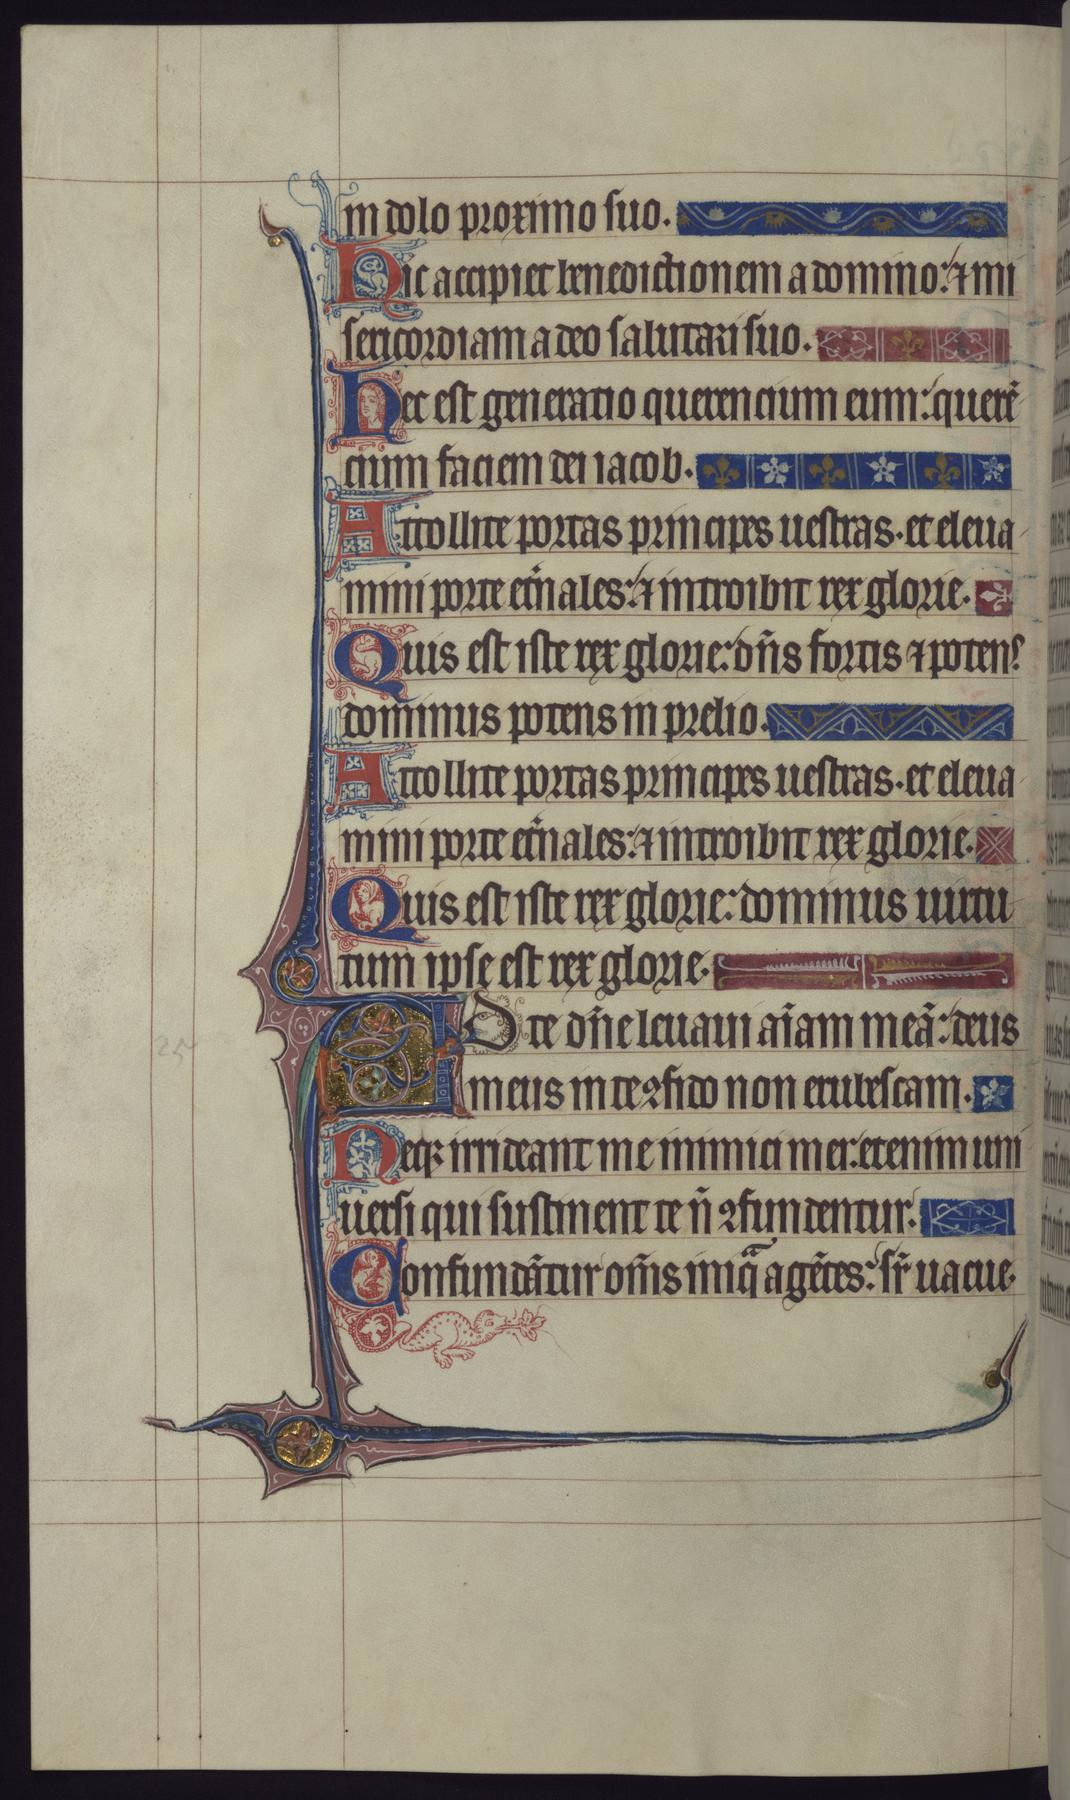 in dolo proximo suo.
Hic accipiet benedictionem a domino: ⁊ mi
sericordiam a deo salutari suo.
Hec est generatio querencium eum: querē
cium faciem dei iacob.
Attollite portas principes uestras. et eleua
mini porte et̄nales: ⁊ introibit rex glorie.
Quis est iste rex glorie: dn̄s fortis ⁊ potens
dominus potens in prelio.
Attollite portas principes uestras. et eleua
mini porte et̄nales: ⁊ introibit rex glorie.
Quis est iste rex glorie: dominus uirtu
tum ipse est rex glorie.
AD te dn̄e leuaui ai̅am meā: deus
meus in te ꝯfido non erubescam.
Neqꝫ irrideant me inimici mei: etenim uni
uersi qui sustinent te n̄ ꝯfundentur.
Confundātur om̄s iniqᵃ agētes: sr̄ uacue.
25